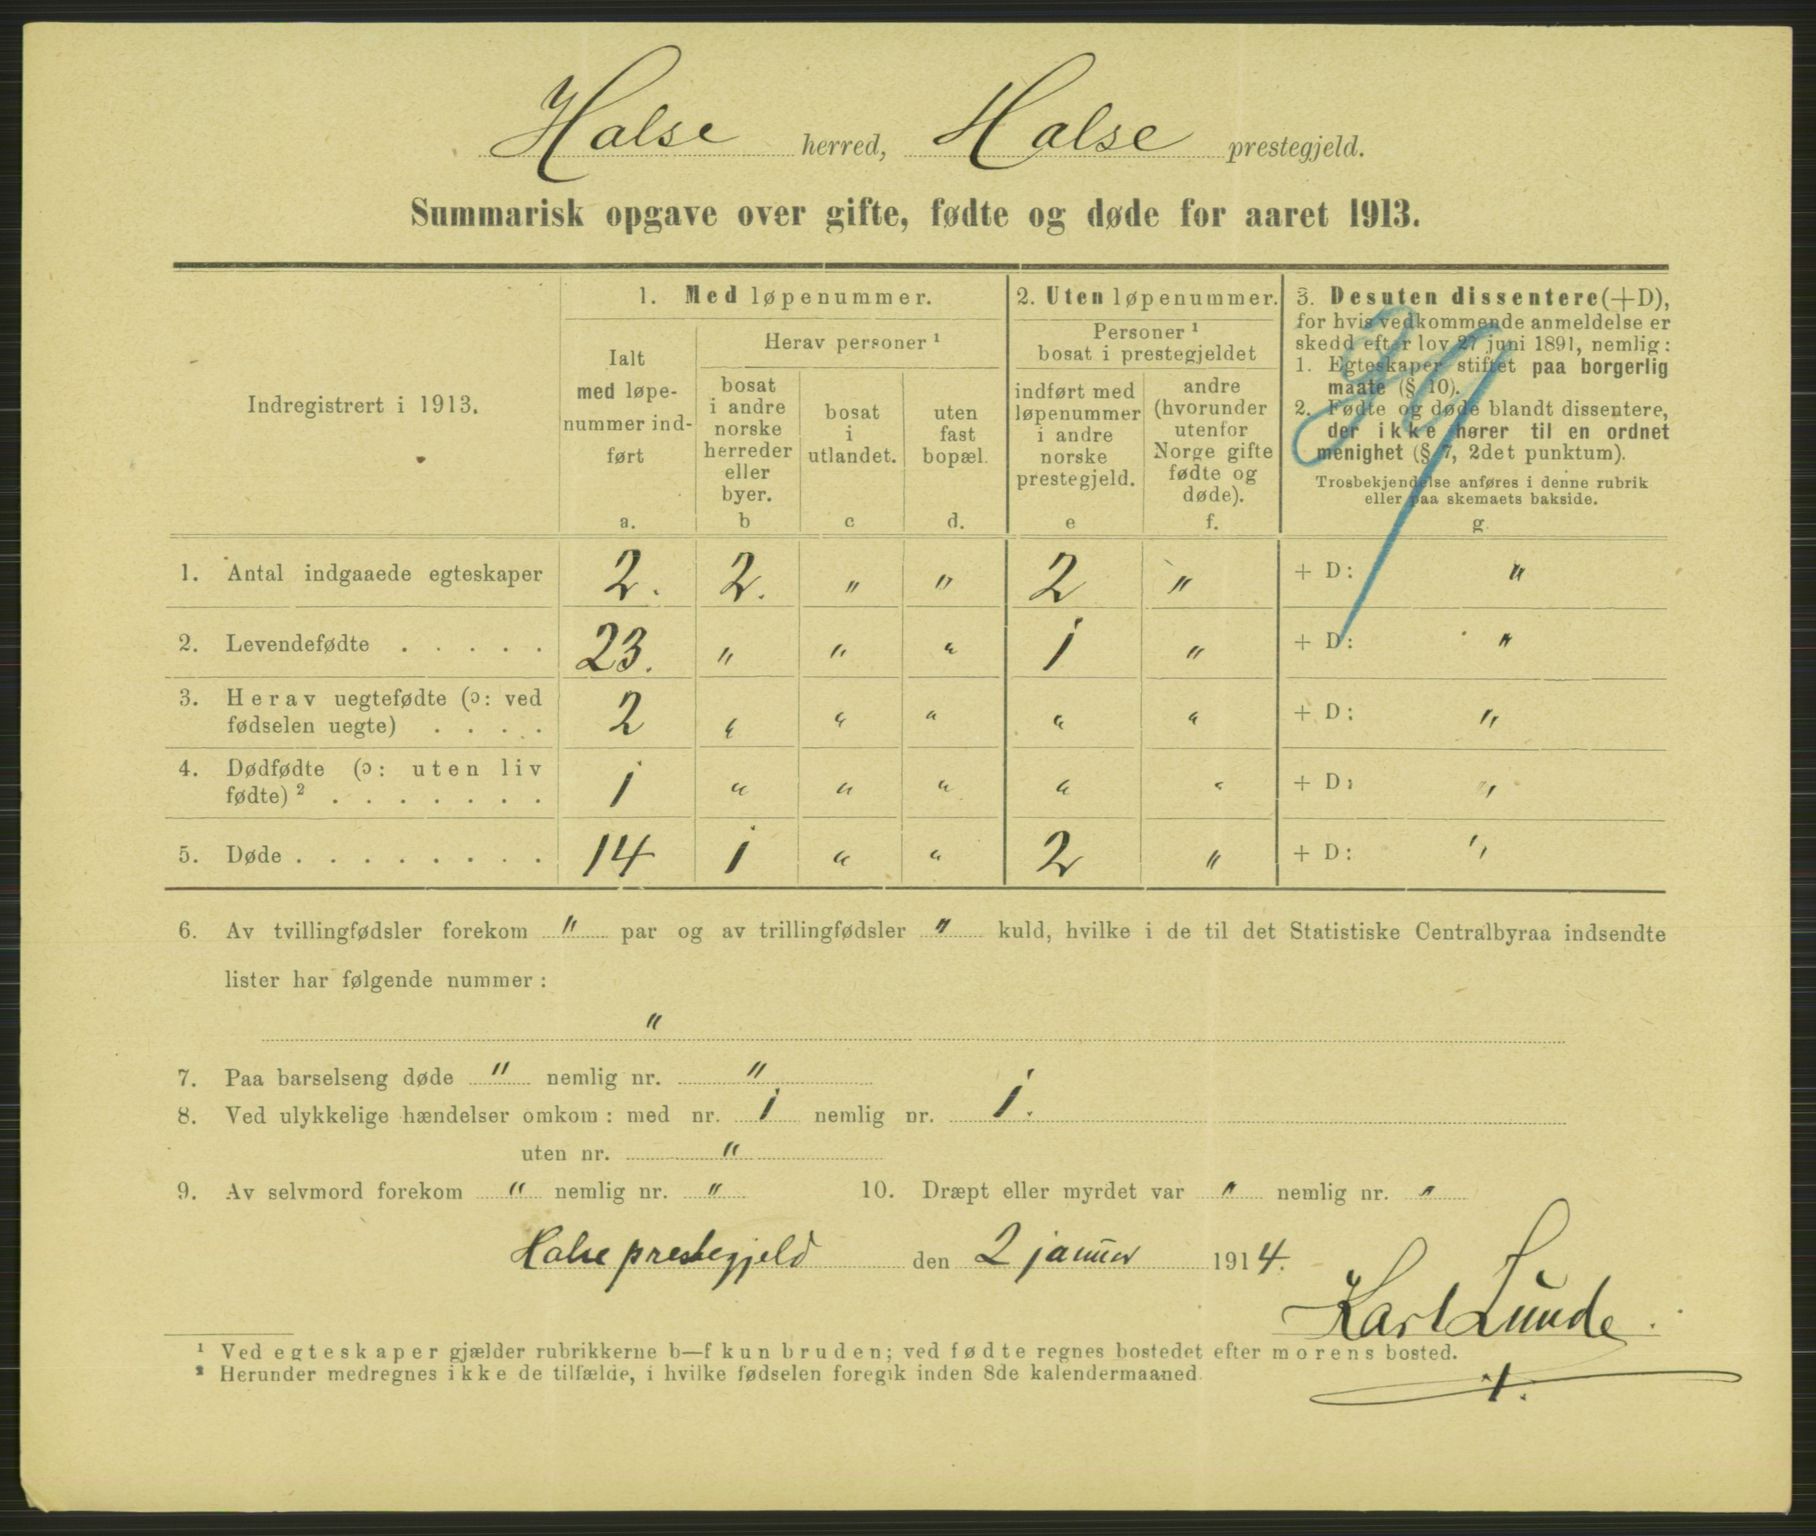 Halse herred, Halse prestegjeld.
Summarisk opgave over gifte, fødte og døde for aaret 1913.
Indregistrert i 1913.
1. Med løpenummer.
Ialt
med løpe-
nummer ind-
ført
a.
Herav personer ¹
bosat
i andre
norske
herreder
eller
byer.
b
bosat
i
utlandet.
c
uten
fast
bopæl.
d.
2. Uten løpenummer.
Personer ¹
bosat i prestegjeldet
indført med
løpenummer
i andre
norske
prestegjeld.
e
andre
(hvorunder
utenfor
Norge gifte
fødte og
døde).
f.
3. Desuten dissentere (+D),
for hvis vedkommende anmeldelse er
skedd efter lov 27 juni 1891, nemlig:
1. Egteskaper stiftet paa borgerlig
maate (§ 10).
2. Fødte og døde blandt dissentere,
der ikke hører til en ordnet
menighet (§ 7, 2det punktum).
Trosbekjendelse anføres i denne rubrik
eller paa skemaets bakside.
g.
1. Antal indgaaede egteskaper 2. 2. " " 2 " + D: "
2. Levendefødte . . . . . 23. " " " 1 " + D: "
3. Herav uegtefødte (ɔ: ved
fødselen uegte) . . . . 2 " " " " " + D: "
4. Dødfødte (ɔ: uten liv
fødte) ² . . . . . . . 1 " " " " " + D: "
5. Døde . . . . . . . . 14 1 " " 2 " + D: "
6. Av tvillingfødsler forekom " par og av trillingfødsler " kuld, hvilke i de til det Statistiske Centralbyraa indsendte
lister har følgende nummer:
"
7. Paa barselseng døde " nemlig nr. "
8. Ved ulykkelige hændelser omkom: med nr. 1 nemlig nr. 1.
uten nr. "
9. Av selvmord forekom " nemlig nr. " 10. Dræpt eller myrdet var " nemlig nr. "
Halse prestegjeld den 2 januar 1914.
Karl Lunde.
¹ Ved egteskaper gjælder rubrikkerne b—f kun bruden; ved fødte regnes bostedet efter morens bosted.
² Herunder medregnes ikke de tilfælde, i hvilke fødselen foregik inden 8de kalendermaaned.